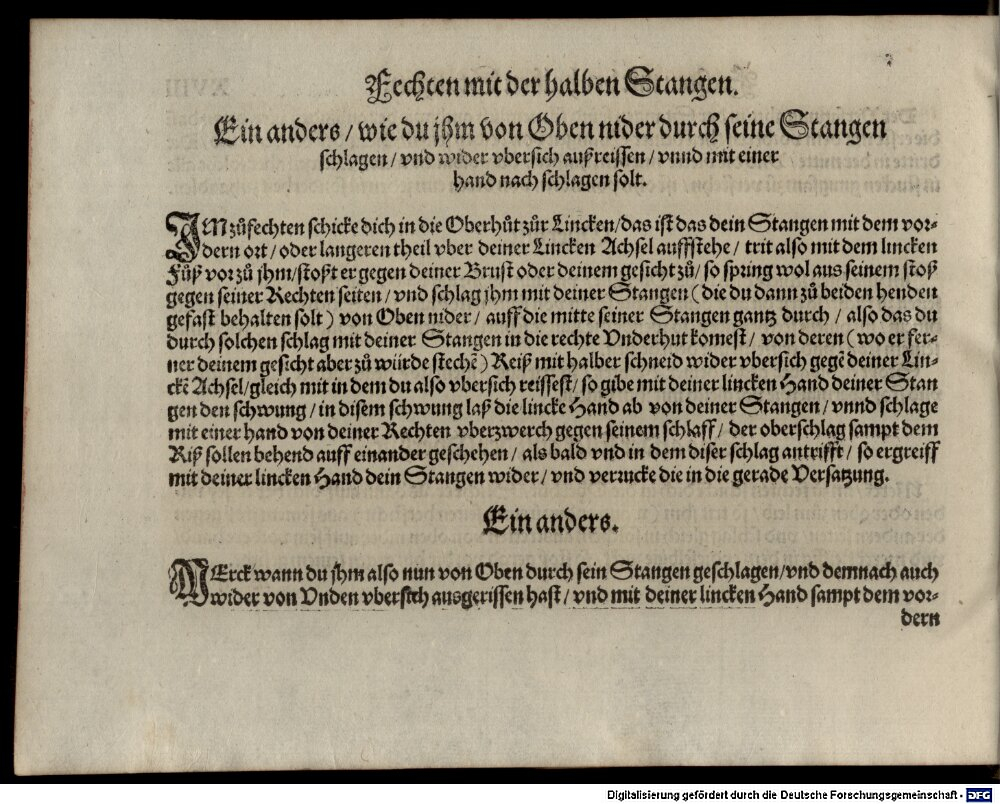 Fechten mit der halben Stangen.
Ein anders / wie du jhm von Oben nider durch seine Stangen
schlagen / vnd wider vbersich außreissen / vnnd mit einer
hand nach schlagen solt.
IM zůfechten schicke dich in die Oberhůt zůr Lincken / das ist das dein Stangen mit dem vor-
dern ort / oder langeren theil vber deiner Lincken Achsel auffstehe / trit also mit dem lincken
Fůß vor zů jhm / stoßt er gegen deiner Brust oder deinem gesicht zů / so spring wol aus seinem stoß
gegen seiner Rechten seiten / vnd schlag jhm mit deiner Stangen ( die du dann zů beiden henden
gefast behalten solt ) von Oben nider / auff die mitte seiner Stangen gantz durch / also das du
durch solchen schlag mit deiner Stangen in die rechte Vnderhut komest / von deren ( wo er fer-
ner deinem gesicht aber zů würde stechē ) Reiß mit halber schneid wider vbersich gegē deiner Lin-
ckē Achsel / gleich mit in dem du also vbersich reissest / so gibe mit deiner lincken Hand deiner Stan
gen den schwung / in disem schwung laß die lincke Hand ab von deiner Stangen / vnnd schlage
mit einer hand von deiner Rechten vberzwerch gegen seinem schlaff / der oberschlag sampt dem
Riß sollen behend auff einander geschehen / als bald vnd in dem diser schlag antrifft / so ergreiff
mit deiner lincken Hand dein Stangen wider / vnd verzucke die in die gerade Versatzung.
Ein anders.
MErck wann du jhm also nun von Oben durch sein Stangen geschlagen / vnd demnach auch
wider von Vnden vbersich ausgerissen hast / vnd mit deiner lincken Hand sampt dem vor-
dern
Digitalisierung gefördert durch die Deutsche Forschungsgemeinschaft - DFG